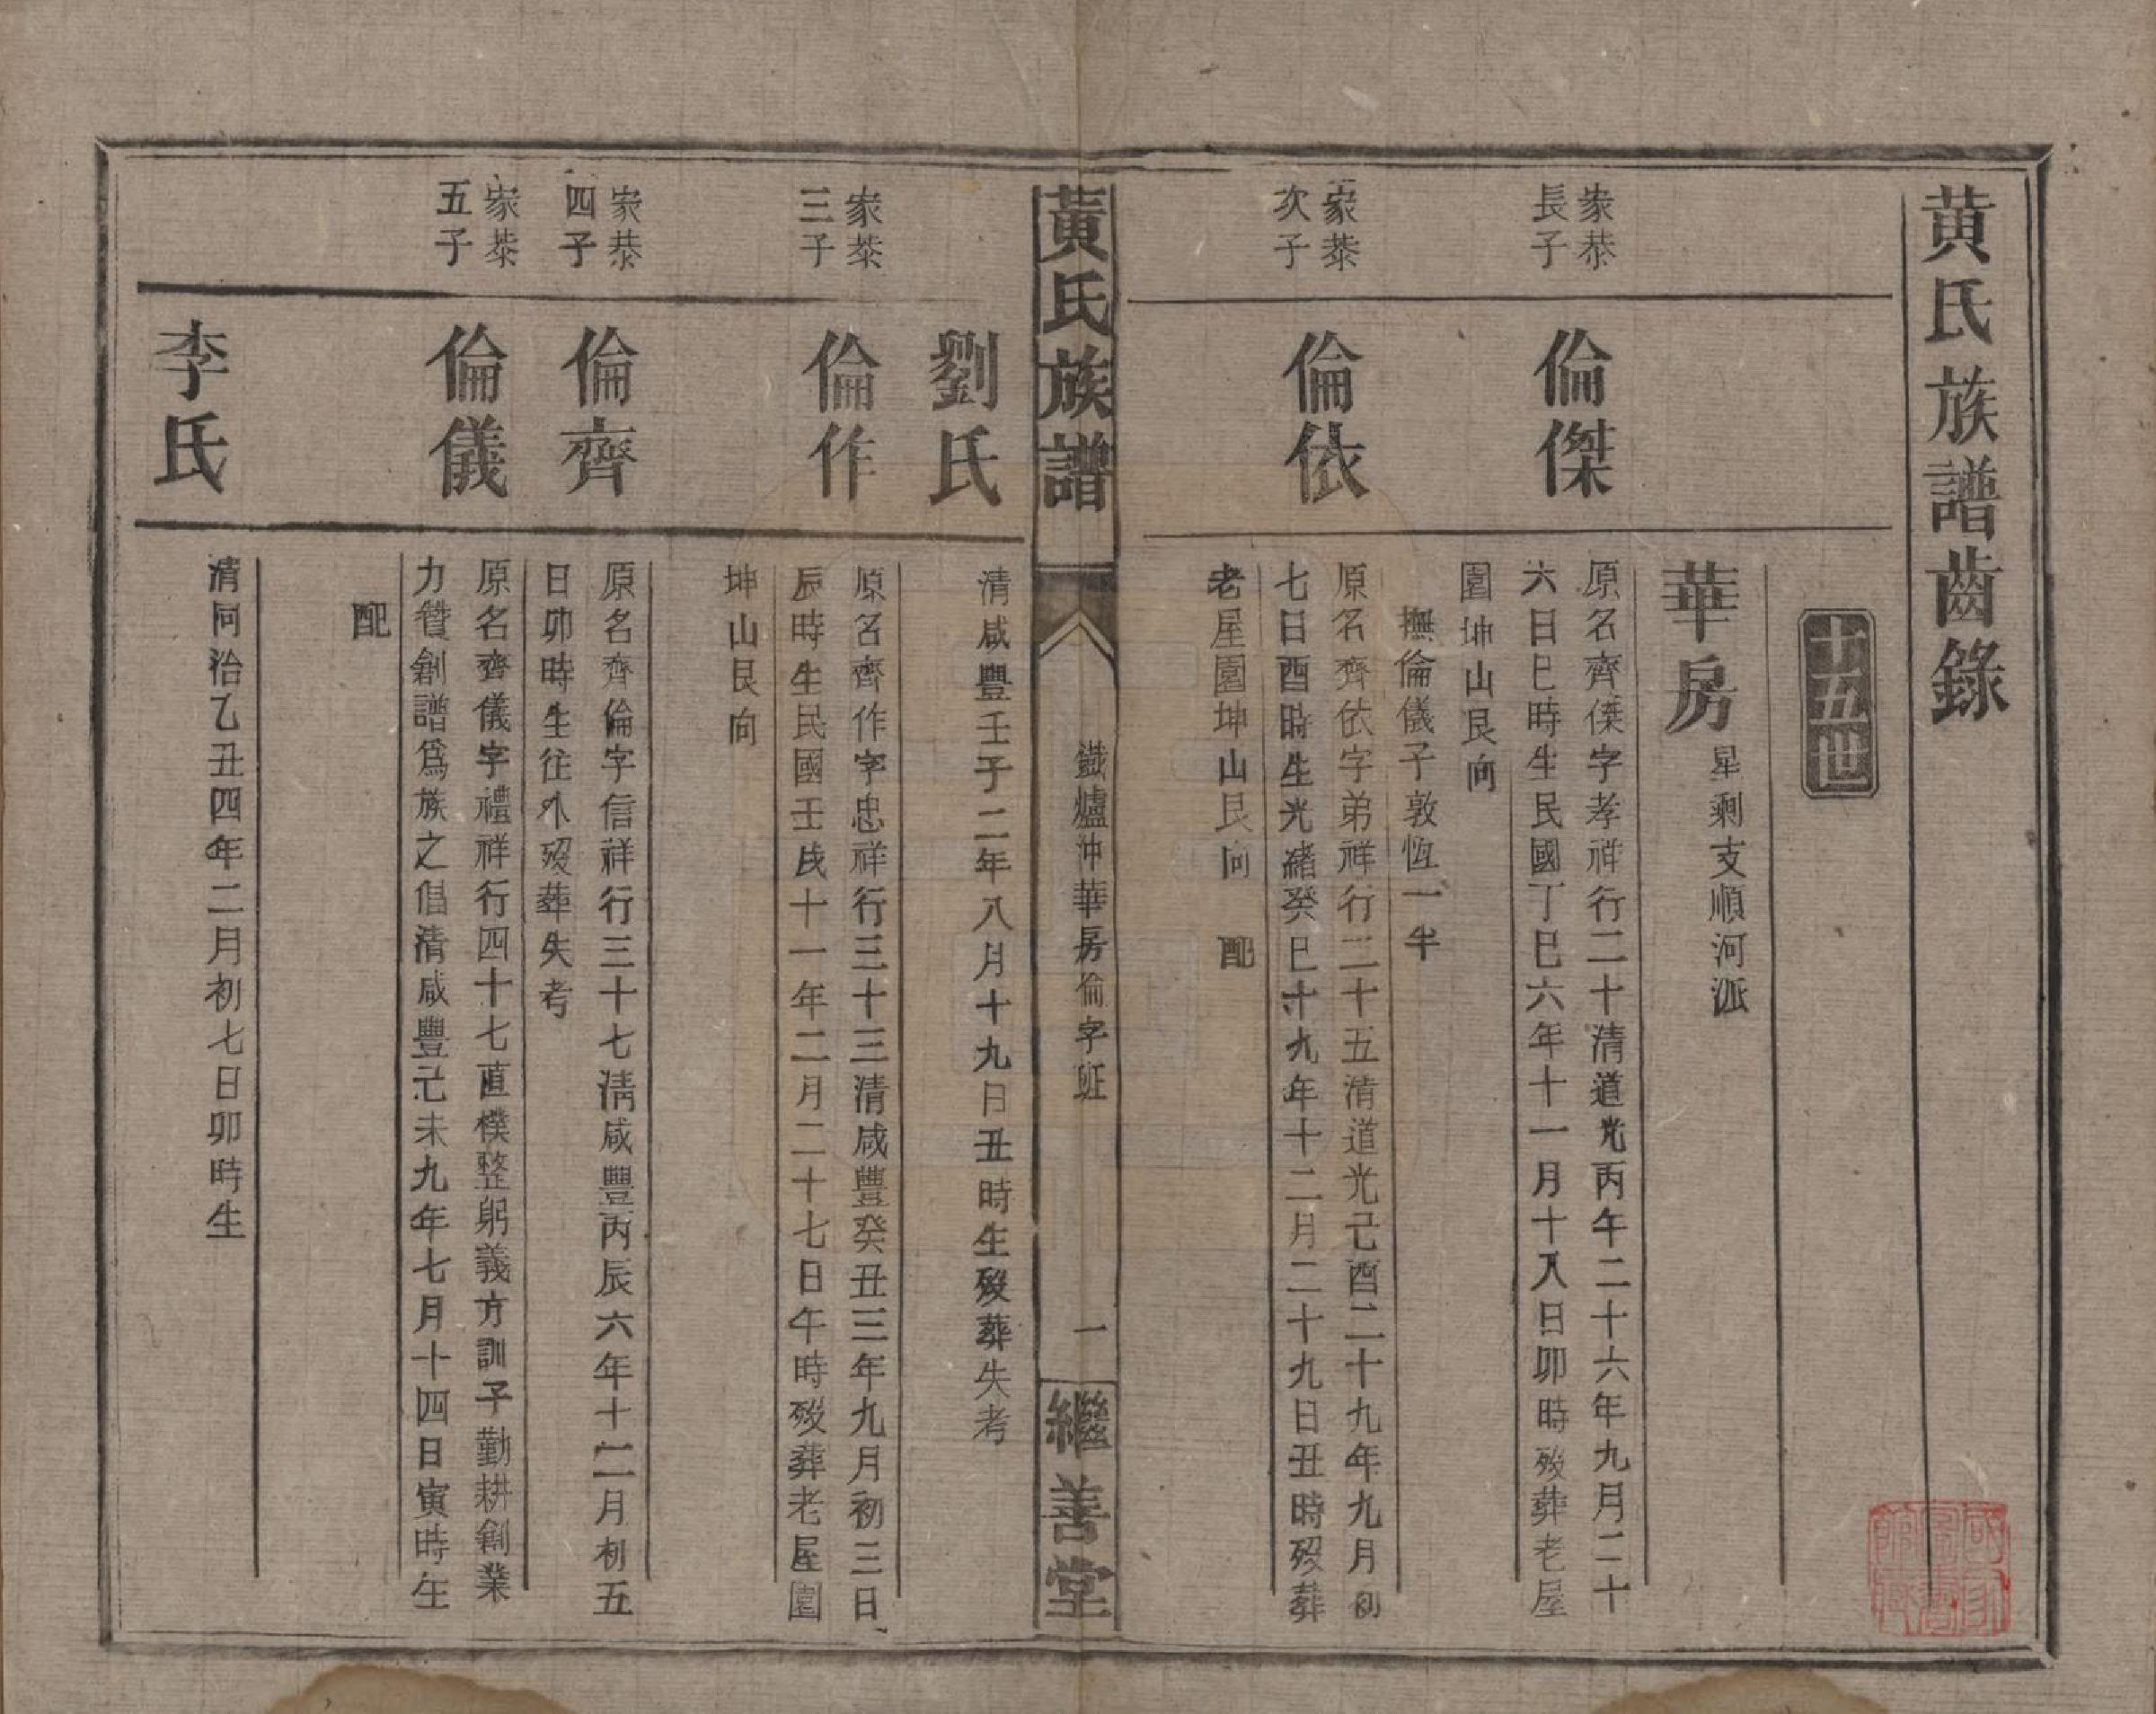 黄氏族譜齒錄
十五世
華房
星剩支順河派
家恭
長子
倫傑
原名齊傑字孝祥行二十清道光丙午二十六年九月二十
六日巳時生民國丁巳六年十一月十八日卯時歿葬老屋
園坤山艮向
撫倫儀子敦恆一半
家恭
次子
倫依
原名齊依字弟祥行二十五清道光己酉二十九年九月初
七日酉時生光緒癸巳十九年十二月二十九日丑時歿葬
老屋園坤山艮向 配
黃氏族譜
鐵爐沖華房倫字班
一
繼善堂
劉氏
清咸豐壬子二年八月十九日丑時生歿葬失考
家恭
三子
倫作
原名齊作字忠祥行三十三清咸豐癸丑三年九月初三日
辰時生民國壬戌十一年二月二十七日午時歿葬老屋園
坤山艮向
家恭
四子
倫齊
原名齊倫字信祥行三十七清咸豐丙辰六年十二月初五
日卯時生往外歿葬失考
家恭
五子
倫儀
原名齊儀字禮祥行四十七直樸整躬義方訓子勤耕創業
力贊創譜爲族之倡清咸豐己未九年七月十四日寅時生
配
李氏
清同治乙丑四年二月初七日卯時生